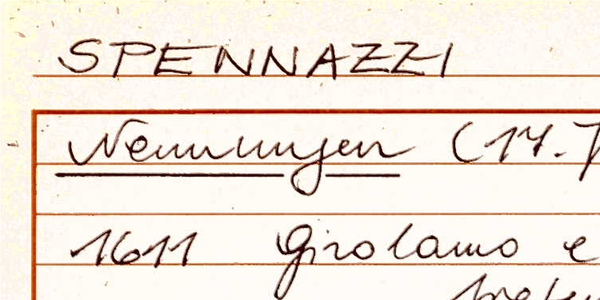 SPENNAZZI
Nennungen (17.
1611 Girolamo e